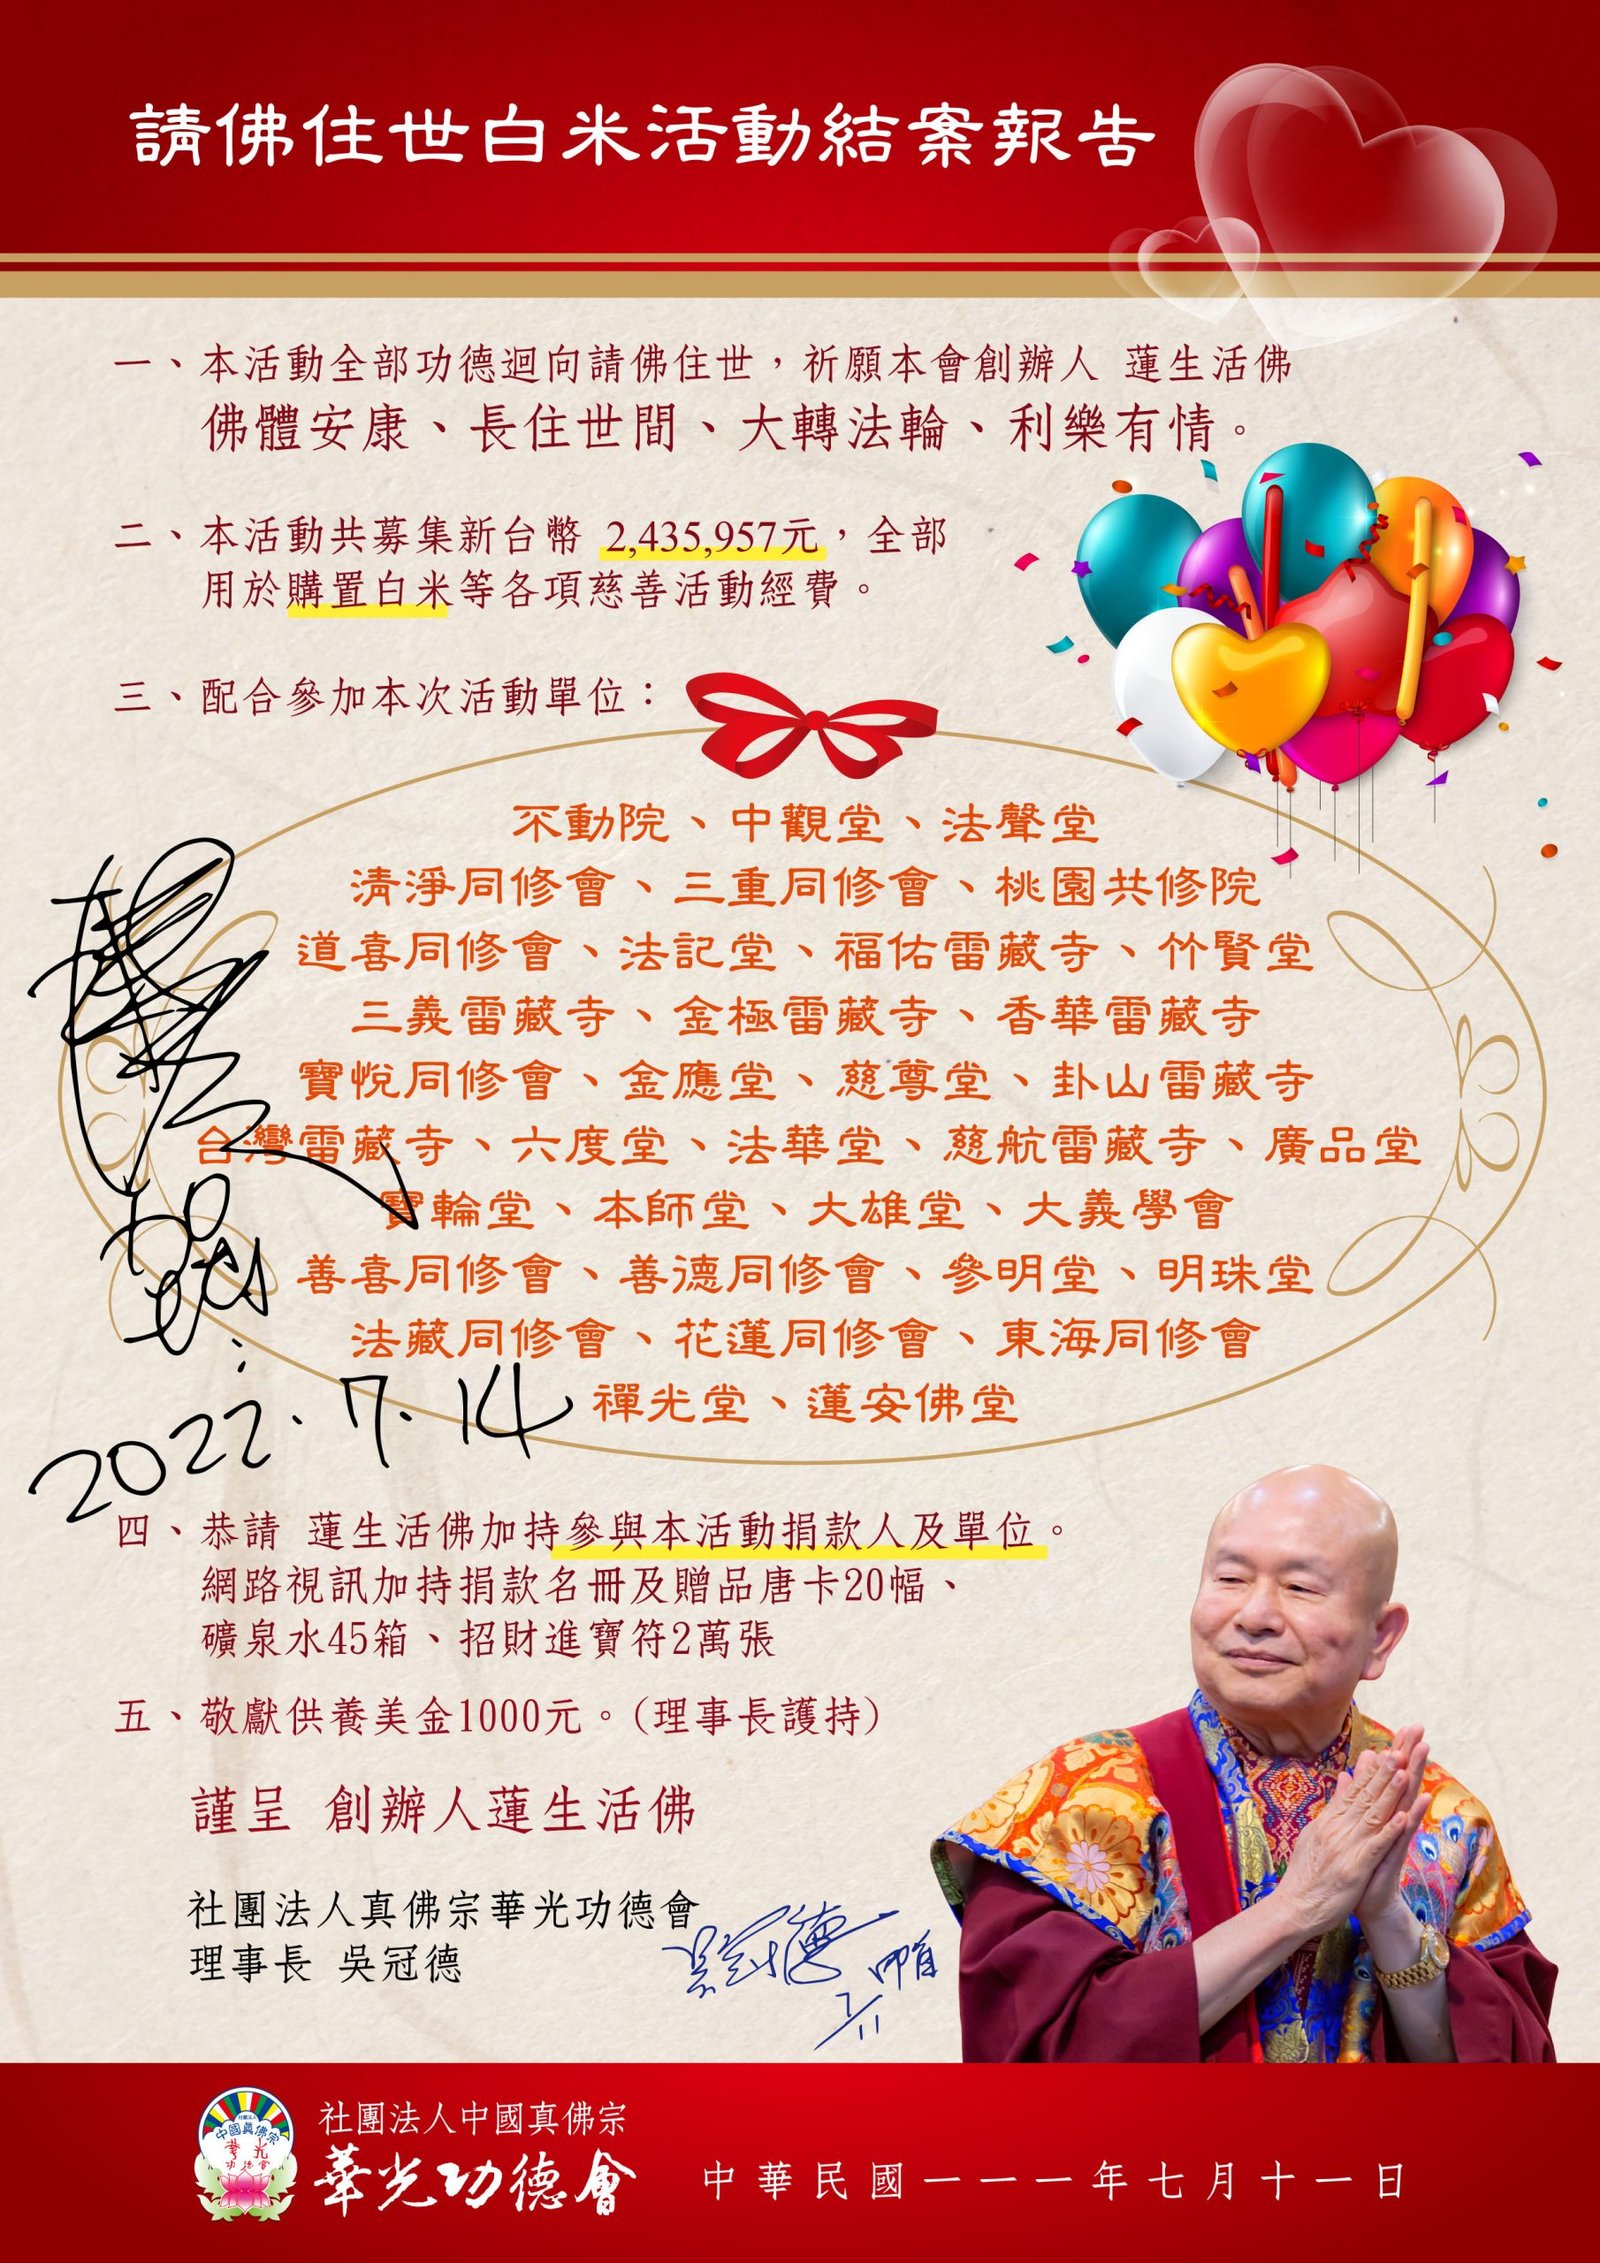 請佛住世白米活動結案報告
一、本活動全部功德迴向請佛住世，祈願本會創辦人 蓮生活佛
佛體安康、長住世間、大轉法輪、利樂有情。
二、本活動共募集新台幣 2,435,957元，全部
用於購置白米等各項慈善活動經費。
三、配合參加本次活動單位：
不動院、中觀堂、法聲堂
清淨同修會、三重同修會、桃園共修院
道喜同修會、法記堂、福佑雷藏寺、竹賢堂
三義雷藏寺、金極雷藏寺、香華雷藏寺
寶悅同修會、金應堂、慈尊堂、卦山雷藏寺
台灣雷藏寺、六度堂、法華堂、慈航雷藏寺、廣品堂
寶輪堂、本師堂、大雄堂、大義學會
善喜同修會、善德同修會、參明堂、明珠堂
法藏同修會、花蓮同修會、東海同修會
禪光堂、蓮安佛堂
2022.7.14
四、恭請 蓮生活佛加持參與本活動捐款人及單位。
網路視訊加持捐款名冊及贈品唐卡20幅、
礦泉水45箱、招財進寶符2萬張
五、敬獻供養美金1000元。(理事長護持)
謹呈 創辦人蓮生活佛
社團法人真佛宗華光功德會
理事長 吳冠德
吳冠德
7/11
社團法人
中國真佛宗
華光
功德會
社團法人中國真佛宗
華光功德會
中華民國一一一年七月十一日